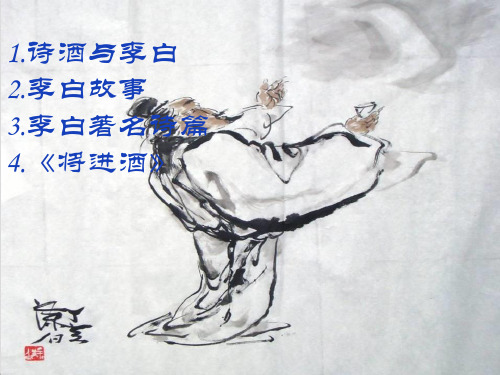 1.诗酒与李白
2.李白故事
3.李白著名诗篇
4.《将进酒》